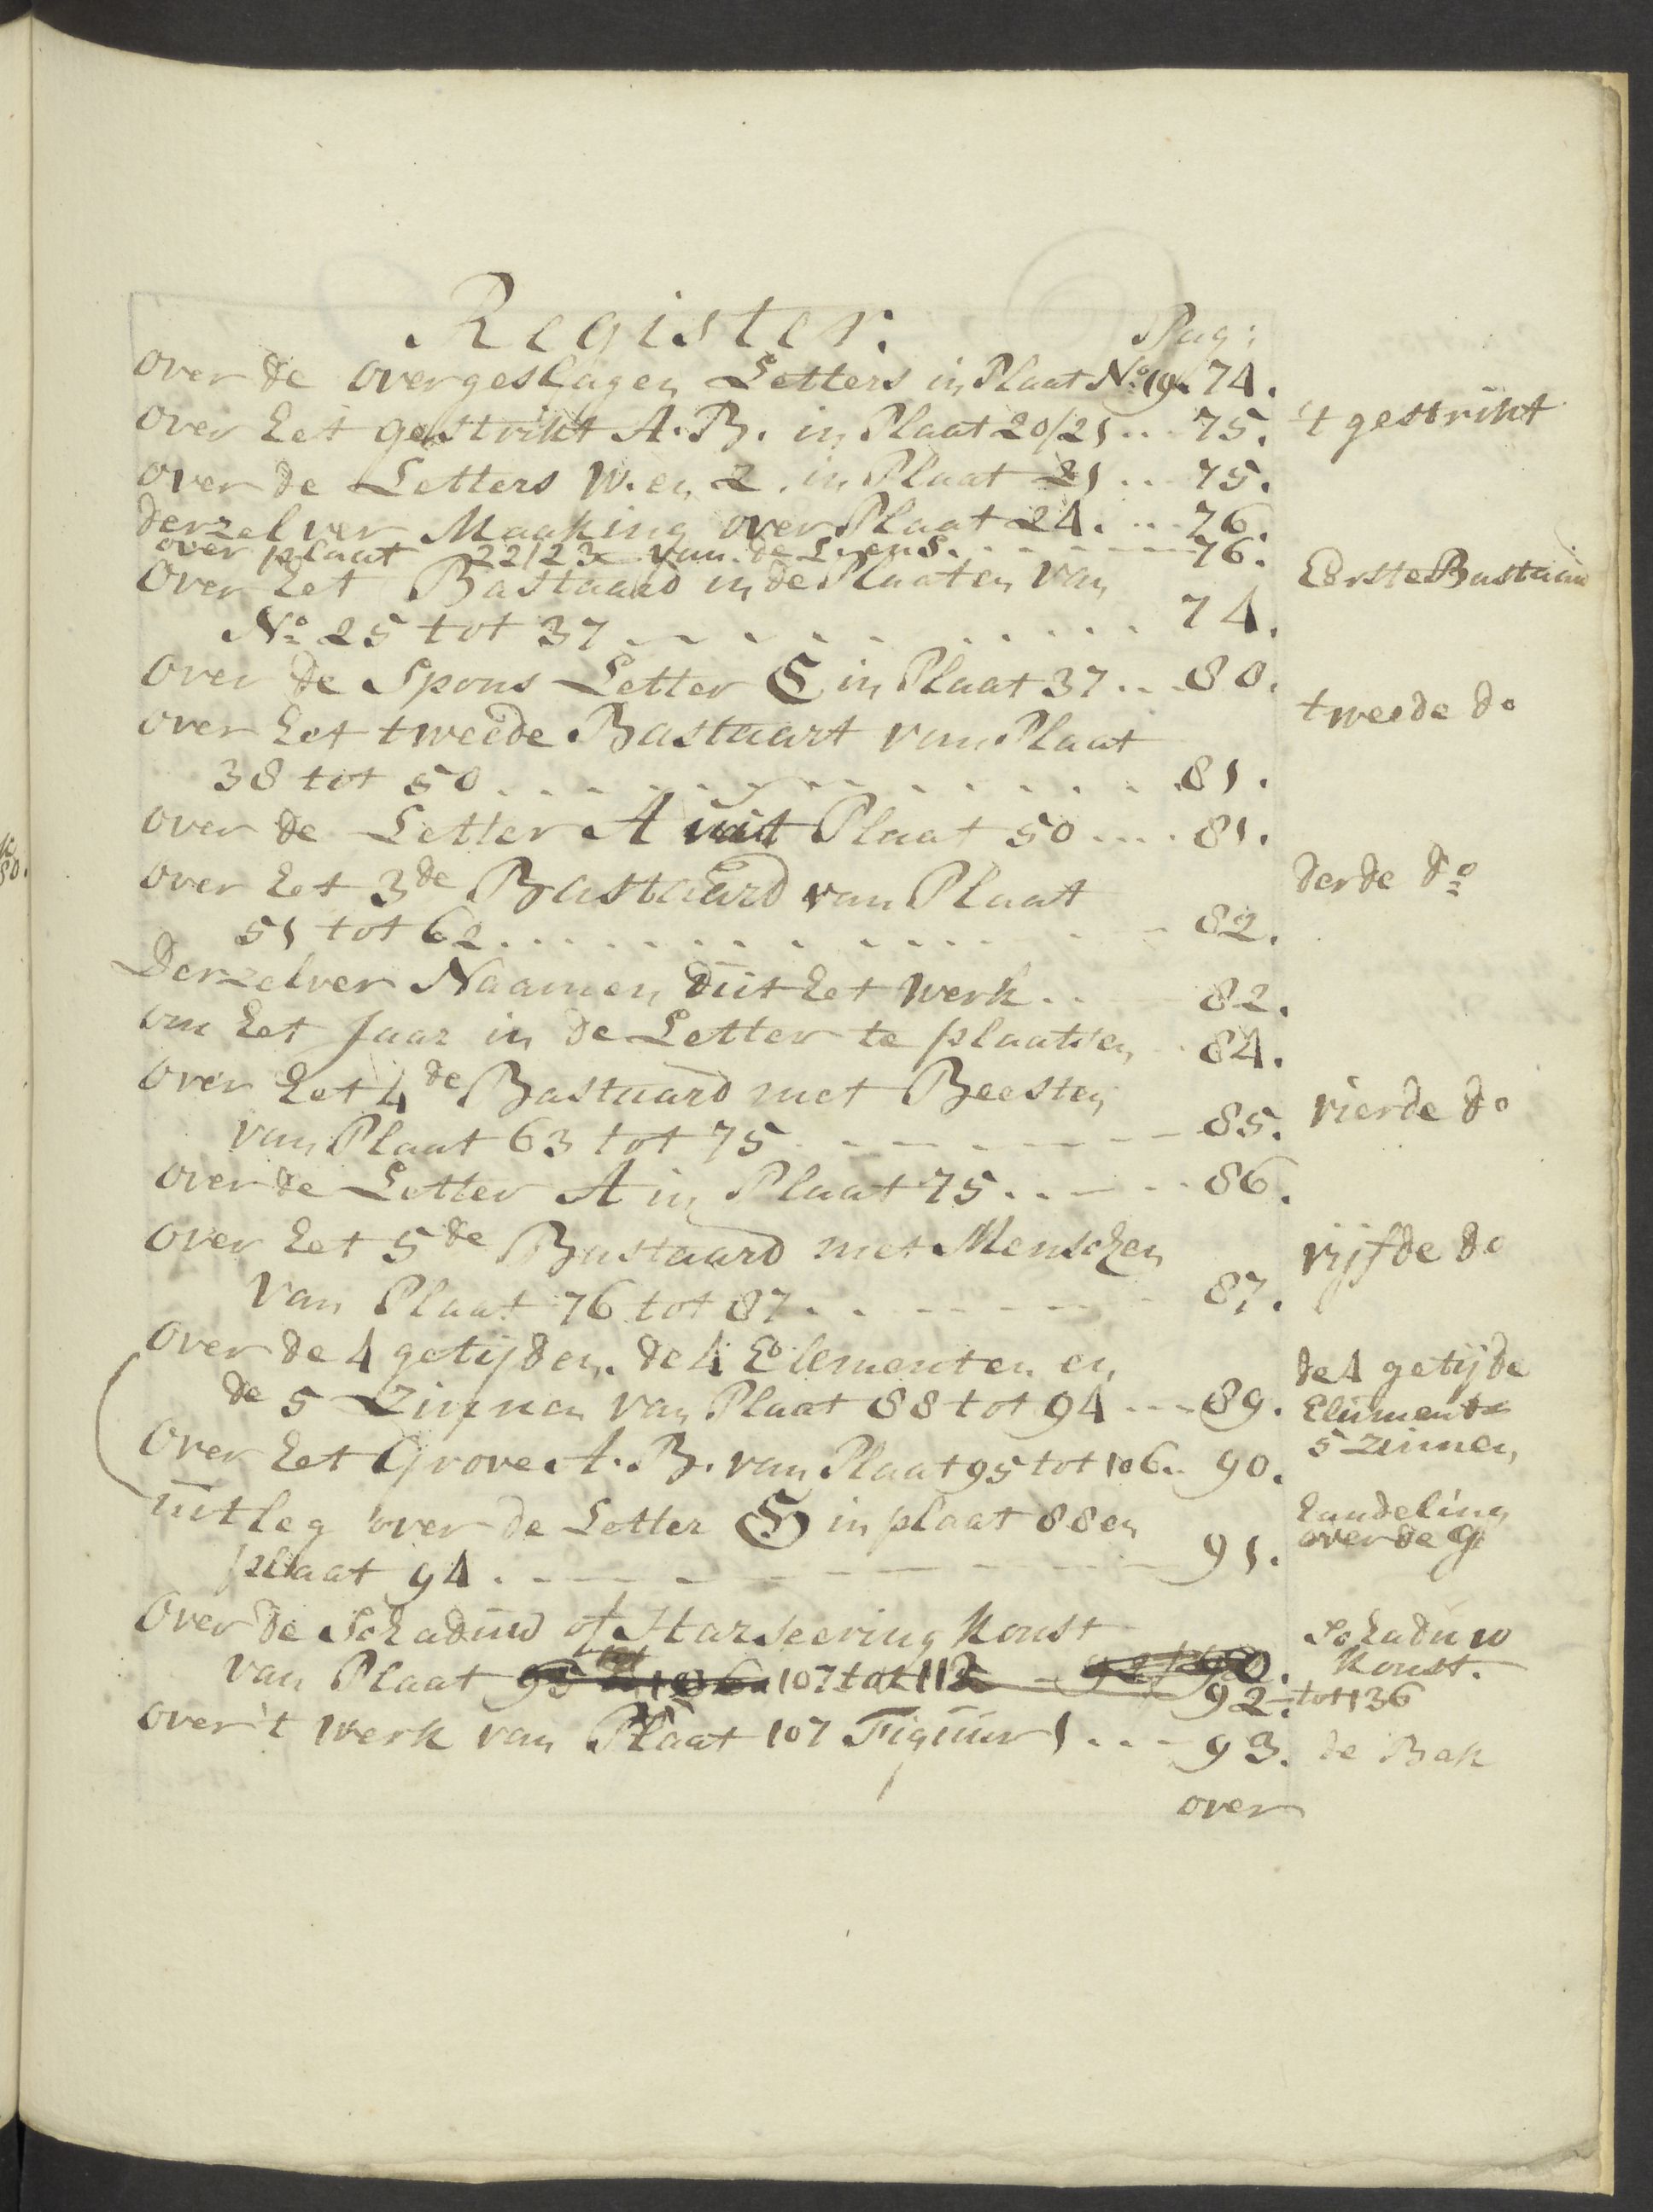 Register. Pag:
over de overgeslagen Letters in Plaat No. 19. 74.
over het gestrikt A.B. in Plaat 20/21 ... 75. 't gestrikt
over de Letters W. en Z. in Plaat 21 ... 75.
derzelver Maaking over Plaat 24. ... 76.
over plaat 22/23 van de Liens. - - - - - 76.
Over het Bastaard in de Plaaten van Eerste Bastaard
No 25 tot 37 - - - - - - - - - - 74.
over de Spons Letter E in Plaat 37 ... 80.
over het tweede Bastaart van Plaat tweede do
38 tot 50 . . . . . . . . . . . . 81.
over de Letter A uit Plaat 50 .... 81.
over het 3de Bastaard van Plaat derde do
51 tot 62 . . . . . . . . . . . . 82.
Derzelver Naamen uit het werk . . 82.
om het Jaar in de Letter te plaatsen . . 84.
over het 4de Bastaard met Beesten vierde do
van Plaat 63 tot 75 - - - - - - - 85.
over de Letter A in Plaat 75 . . - - . 86.
over het 5de Bastaard met Menschen vijfde do
van Plaat 76 tot 87 . . - - - - - 87.
over de 4 getijden. de 4 Elementen en de 4 getijde
de 5 Zinnen van Plaat 88 tot 94 --- 89. Elumente
5 Zinnen
over het Grove A.B. van Plaat 95 tot 106 .. 90.
uitleg over de Letter G in plaat 88 en handeling
over de G
plaat 94 . - - - - - - - - - 91.
Over de Schaduw of Harseering Konst Schaduw
van Plaat 95 tot 106 107 tot 112 - 90. Konst.
92. tot 136
over 't werk van Plaat 107 Figuur 1 . . - 93. de Bak
over